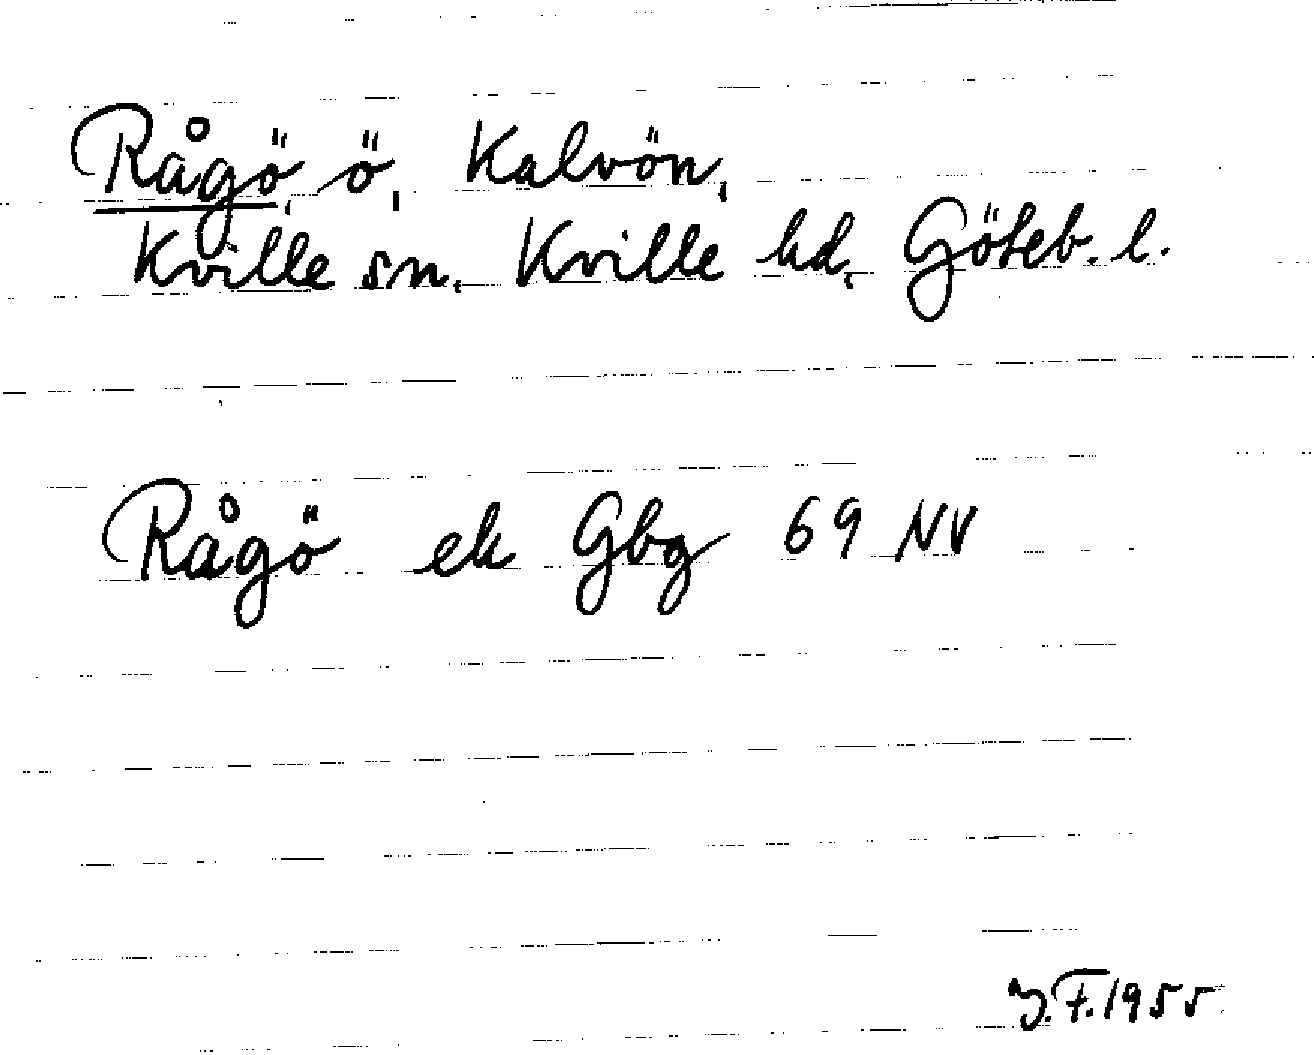 Rågö, ö, Kalvön,
Kville sn. Kville hd, Göteb. l.
Rågö ek Gbg 69 NV
J.F. 1955